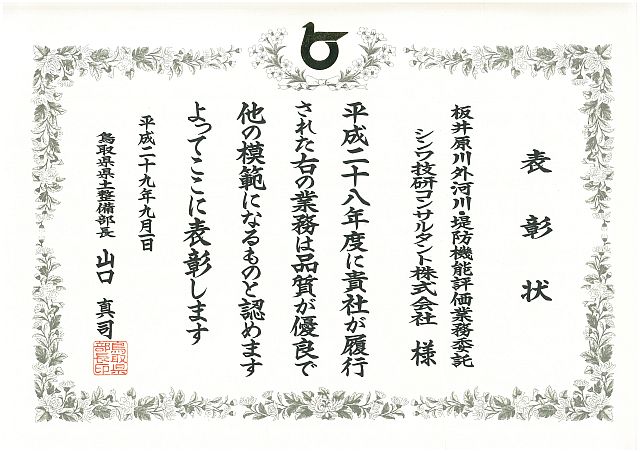 表彰状
板井原川外河川・堤防機能評価業務委託
シンワ技研コンサルタント株式会社 様
平成二十八年度に貴社が履行
された右の業務は品質が優良で
他の模範になるものと認めます
よってここに表彰します
平成二十九年九月一日
鳥取県県土整備部長 山口 真司
鳥取県
部長印